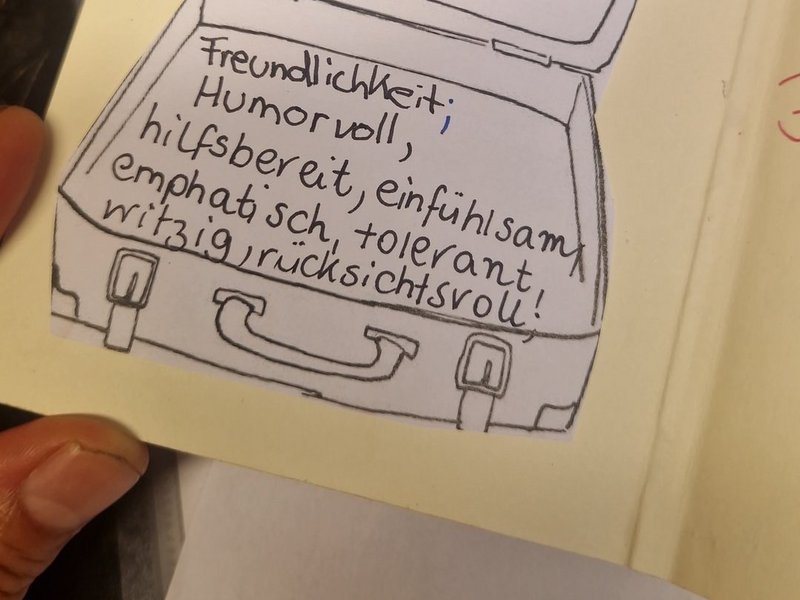 Freundlichkeit;
Humorvoll,
hilfsbereit, einfühlsam,
emphatisch, tolerant,
witzig, rücksichtsvoll!